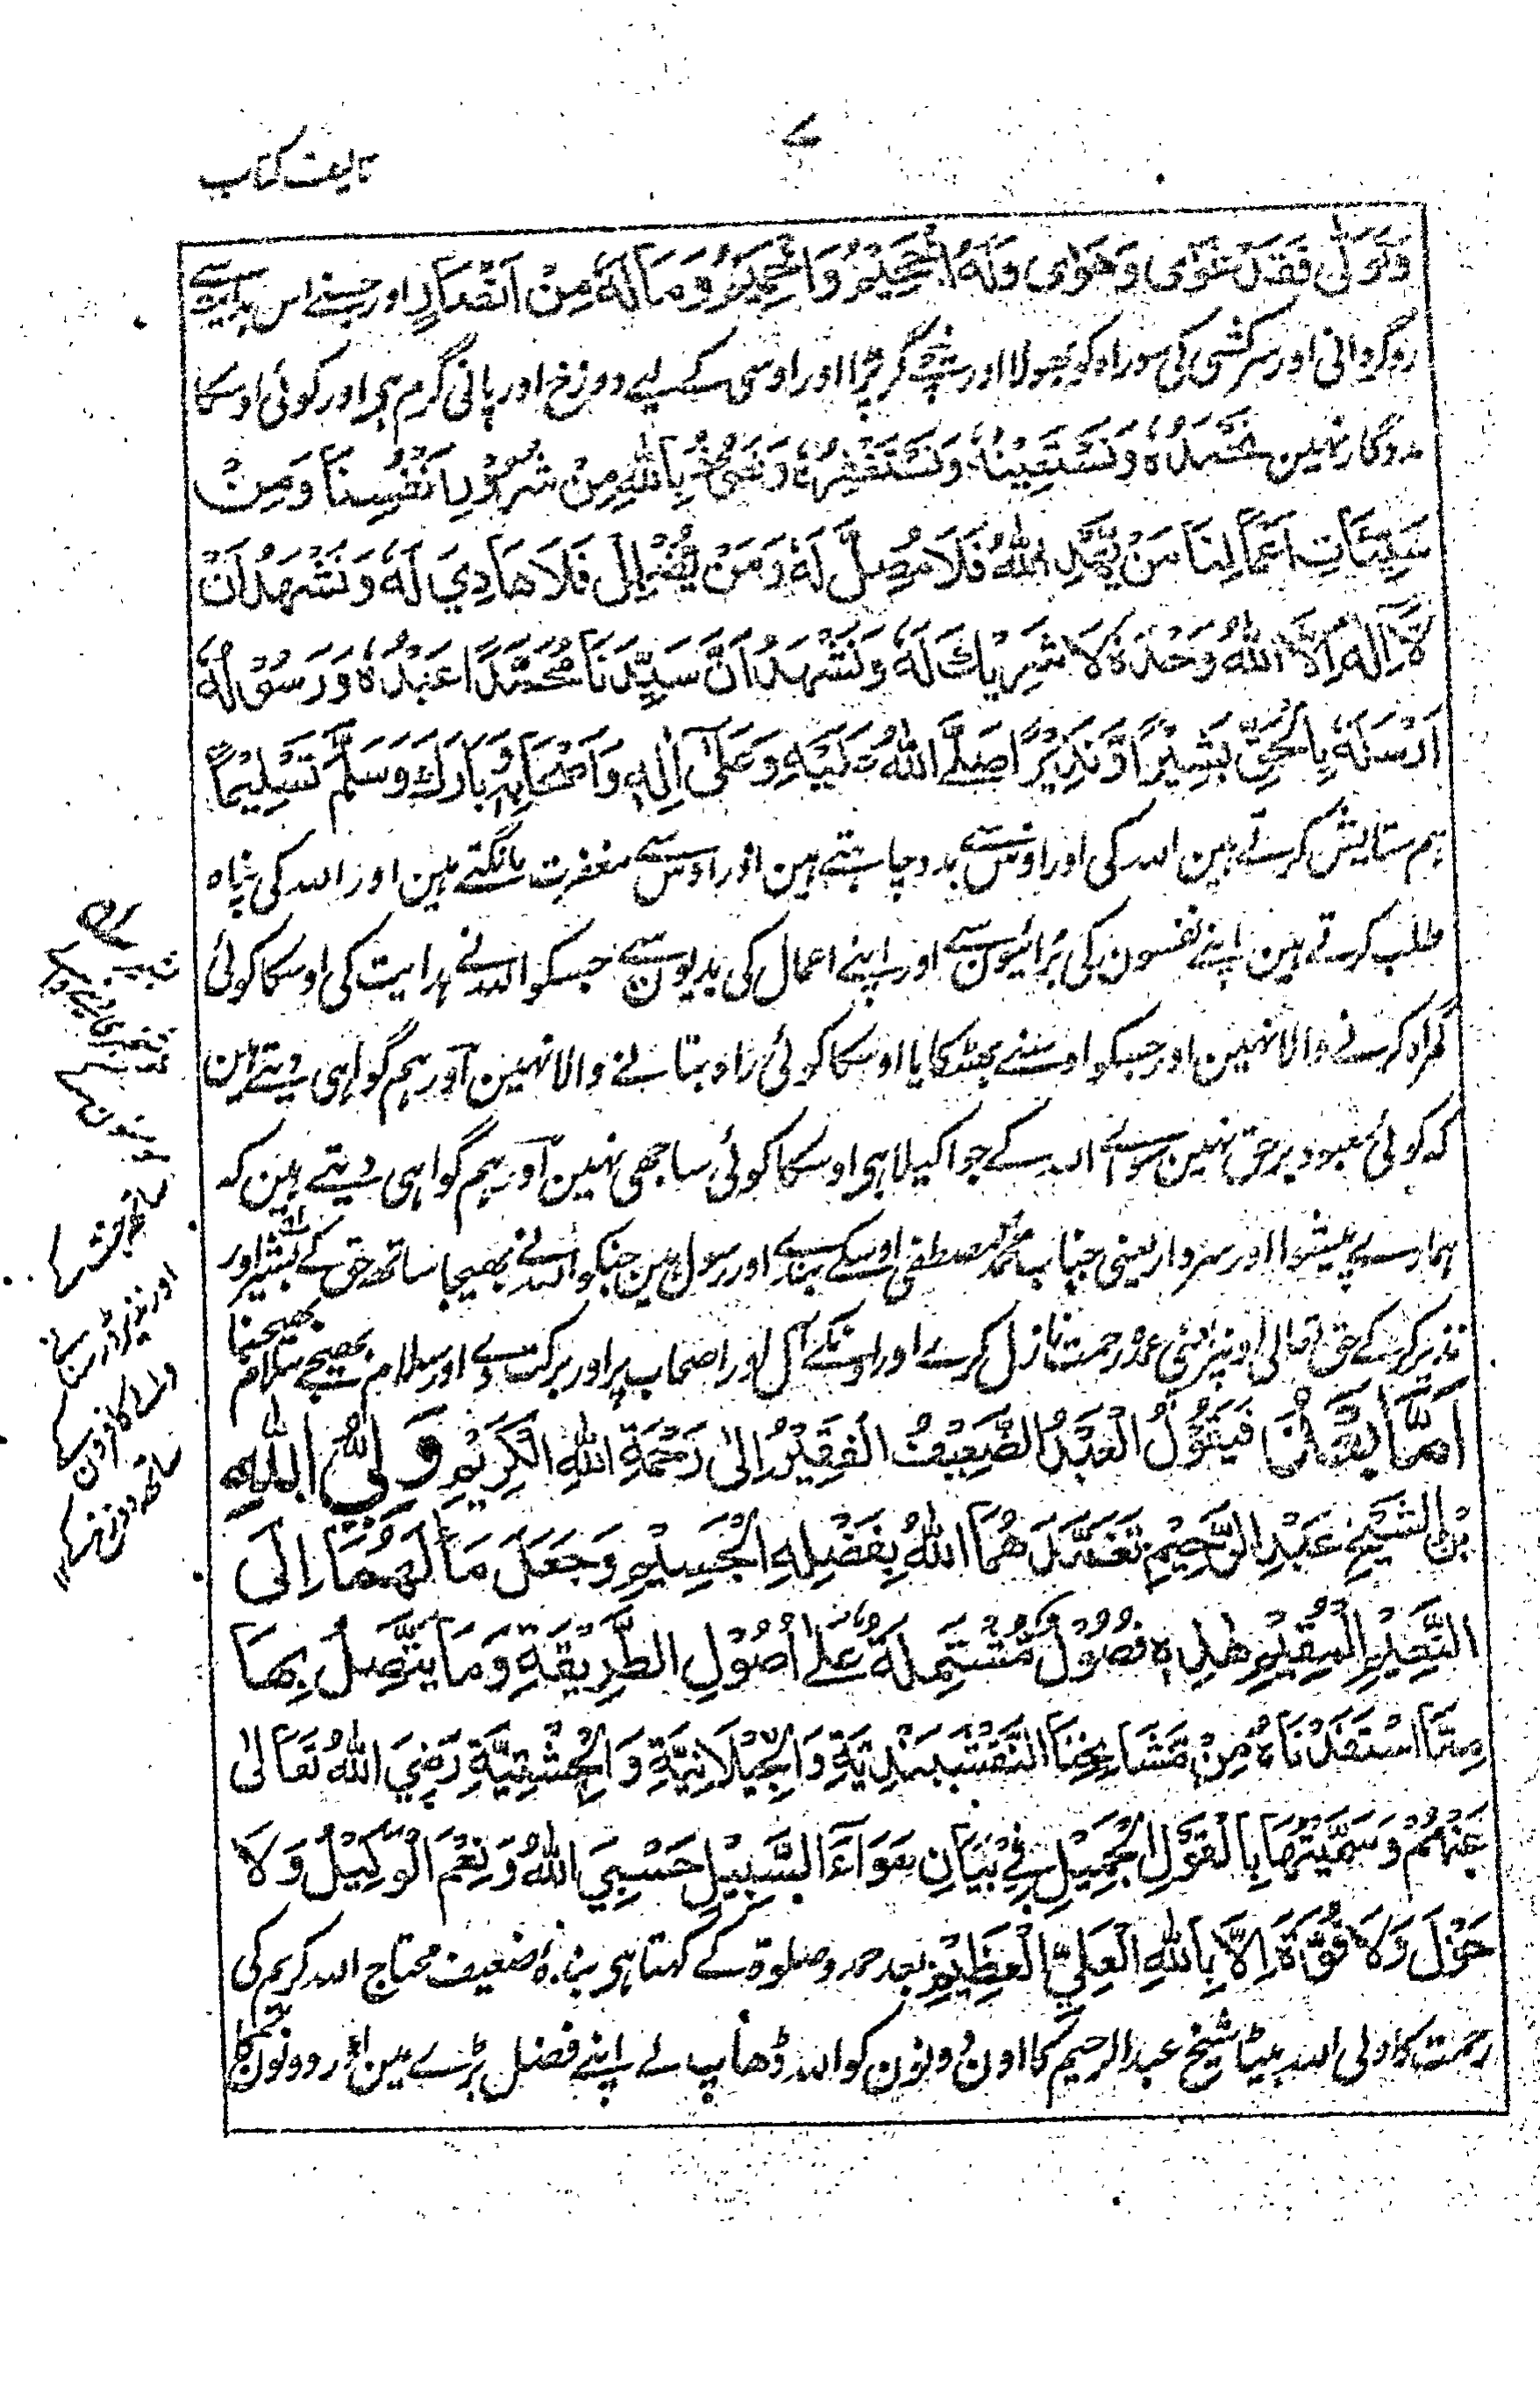 ۷
تالیف کتاب
وَتَوَلّٰى فَقَدْ غَوٰى وَهَوٰى وَلَهُ الْجَحِيْمُ وَالْحَمِيْمُ وَمَالَهٗ مِنْ اَنْصَارٍ اور جسنے اس ہدایت سے
روگردانی اور سرکشی کی سو راہ کو بھولا اور نیچے گر پڑا اور اوسی کے لیے دوزخ اور پانی گرم ہی اور کوئی اوسکا
مددگار نہین نَحْمَدُهٗ وَنَسْتَعِيْنُهٗ وَنَسْتَغْفِرُهٗ وَنَعُوْذُ بِاللهِ مِنْ شُرُوْرِ اَنْفُسِنَا وَمِنْ
سَيِّئَاتِ اَعْمَالِنَا مَنْ يَّهْدِ اللهُ فَلَا مُضِلَّ لَهٗ وَمَنْ يُّضْلِلْ فَلَا هَادِيَ لَهٗ وَنَشْهَدُ اَنْ
لَّا اِلٰهَ اِلَّا اللهُ وَحْدَهٗ لَا شَرِيْكَ لَهٗ وَنَشْهَدُ اَنَّ سَيِّدَنَا مُحَمَّدًا عَبْدُهٗ وَرَسُوْلُهٗ
اَرْسَلَهٗ بِالْحَقِّ بَشِيْرًا وَّنَذِيْرًا صَلَّى اللهُ عَلَيْهِ وَعَلٰى اٰلِهٖ وَاَصْحَابِهٖ وَبَارَكَ وَسَلَّمَ تَسْلِيْمًا
ہم ستایش کرتے ہین اللہ کی اور اوس سے مدد چاہتے ہین اور اوس سے مغفرت مانگتے ہین اور اللہ کی پناہ
طلب کرتے ہین اپنے نفسون کی برائیون سے اور اپنے اعمال کی بدیون سے جسکو اللہ نے ہدایت کی اوسکا کوئی
گمراہ کرنے والا نہین اور جسکو اوسنے بھٹکایا اوسکا کوئی راہ بتانے والا نہین اور ہم گواہی دیتے ہین
کہ کوئی معبود برحق نہین سوائے اللہ کے جو اکیلا ہی اوسکا کوئی ساجھی نہین اور ہم گواہی دیتے ہین کہ
ہمارے پیشوا اور سردار یعنی جناب محمد مصطفی اوسکے بندے اور رسول ہین جنکو اللہ نے بھیجا ساتھ حق کے بشیر اور
نذیر کرکے حق تعالی اونپر اپنی عمدہ رحمت نازل کرے اور اونکے آل اور اصحاب پر اور برکت دے اور سلام بھیجے سلام بھیجنا
اَمَّا بَعْدُ فَيَقُوْلُ الْعَبْدُ الضَّعِيْفُ الْفَقِيْرُ اِلٰى رَحْمَةِ اللهِ الْكَرِيْمِ وَلِيُّ اللهِ
بْنُ الشَّيْخِ عَبْدِ الرَّحِيْمِ تَغَمَّدَهُمَا اللهُ بِفَضْلِهِ الْجَسِيْمِ وَجَعَلَ مَاٰلَهُمَا اِلَى
النَّعِيْمِ الْمُقِيْمِ هٰذِهٖ فُصُوْلٌ مُّشْتَمِلَةٌ عَلٰى اُصُوْلِ الطَّرِيْقَةِ وَمَا يَتَّصِلُ بِهَا
مِمَّا اسْتَفَدْنَاهُ مِنْ مَّشَايِخِنَا النَّقْشَبَنْدِيَّةِ وَالْجِيْلَانِيَّةِ وَالْچِشْتِيَّةِ رَضِيَ اللهُ تَعَالٰى
عَنْهُمْ وَسَمَّيْتُهَا بِالْقَوْلِ الْجَمِيْلِ فِيْ بَيَانِ سَوَآءِ السَّبِيْلِ حَسْبِيَ اللهُ وَنِعْمَ الْوَكِيْلُ وَلَا
حَوْلَ وَلَا قُوَّةَ اِلَّا بِاللهِ الْعَلِيِّ الْعَظِيْمِ بعد حمد و صلوۃ کے کہتا ہی بندۂ ضعیف محتاج اللہ کریم کی
رحمت کا ولی اللہ بیٹا شیخ عبد الرحیم کا اون دونون کو اللہ ڈھانپ لے اپنے فضل بڑے مین اور دونون کا
اور نذیر ڈر سنانے
والے کافرون کے
ساتھ دوزخ کے